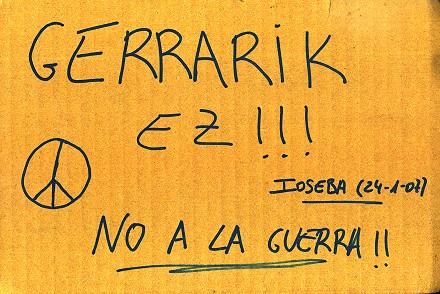 GERRARIK
EZ!!!
IOSEBA (24-1-07)
NO A LA GUERRA!!